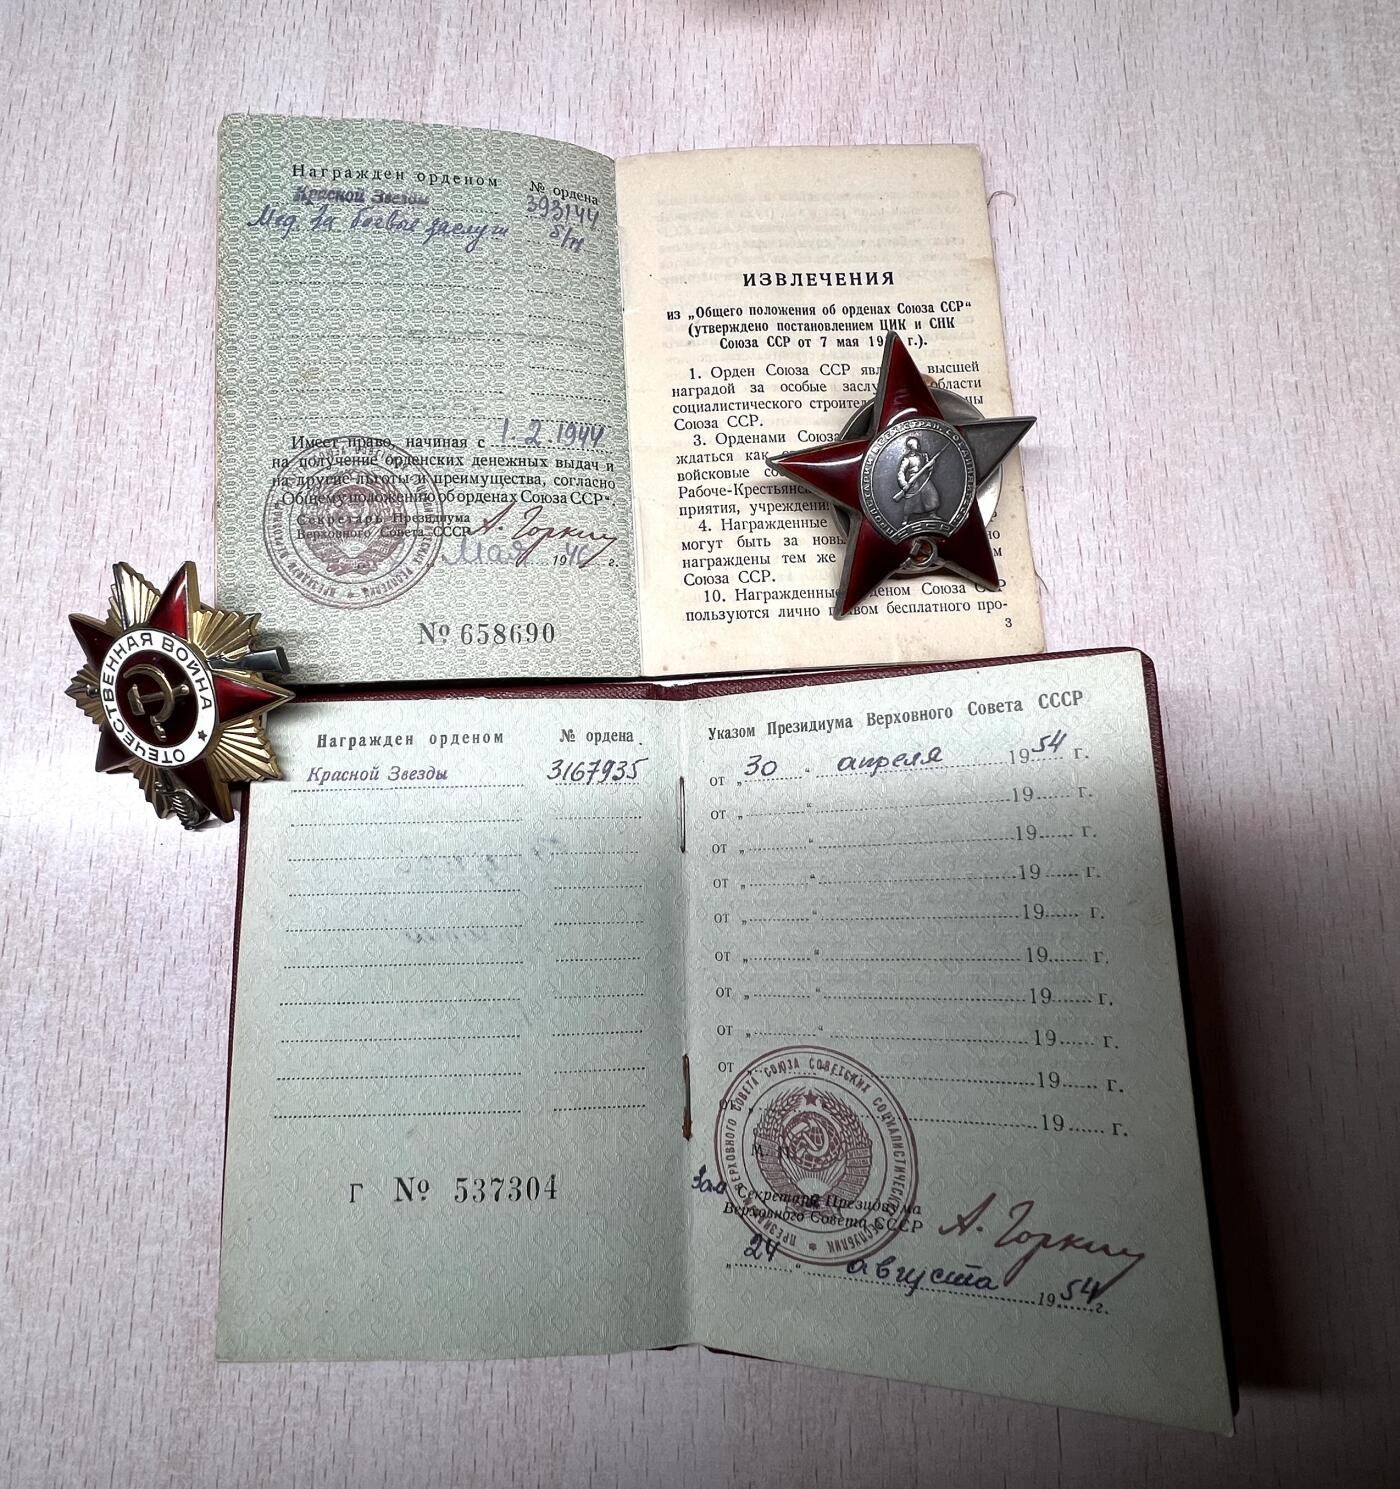 Награжден орденом
№ ордена
Красной Звезды
393144
Мед. За боевые заслуги
б/н
Имеет право, начиная с 1.2.1944
на получение орденских денежных выдач и
на другие льготы и преимущества, согласно
„Общему положению об орденах Союза ССР“.
Секретарь Президиума
Верховного Совета СССР
А. Горкин
Мая 1946 г.
№ 658690
ИЗВЛЕЧЕНИЯ
из „Общего положения об орденах Союза ССР“
(утверждено постановлением ЦИК и СНК
Союза ССР от 7 мая 19 г.).
1. Орден Союза ССР явл высшей
наградой за особые заслу области
социалистического строител ны
Союза ССР.
3. Орденами Союза
ждаться как
войсковые со
Рабоче-Крестьянс
приятия, учреждени
4. Награжденные но
могут быть за новы м
награждены тем же
Союза ССР.
10. Награжденные орденом Союза ССР
пользуются лично правом бесплатного про-
3
ОТЕЧЕСТВЕННАЯ ВОЙНА
ПРОЛЕТАРИИ ВСЕХ СТРАН, СОЕДИНЯЙТЕСЬ
СССР
Награжден орденом
№ ордена
Красной Звезды
3167935
Г № 537304
Указом Президиума Верховного Совета СССР
от „30“ апреля 1954 г.
от „ “ 19 г.
от „ “ 19 г.
от „ “ 19 г.
от „ “ 19 г.
от „ “ 19 г.
от „ “ 19 г.
от „ “ 19 г.
от „ 19 г.
от „ 19 г.
М. П.
Зам Секретарь Президиума
Верховного Совета СССР
А. Горкин
„24“ августа 1954 г.
ПРЕЗИДИУМ ВЕРХОВНОГО СОВЕТА СОЮЗА СОВЕТСКИХ СОЦИАЛИСТИЧЕСКИХ РЕСПУБЛИК